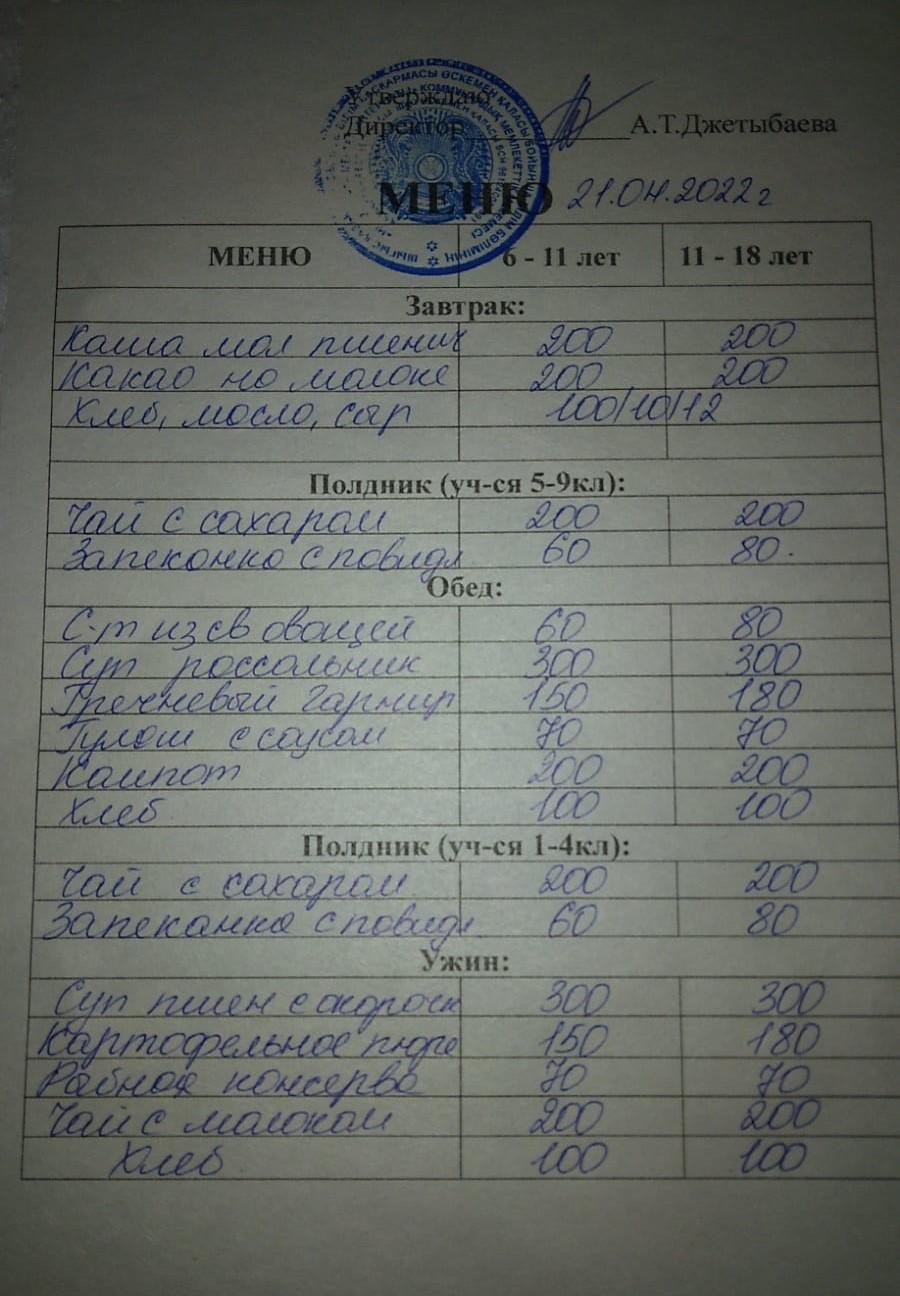 Утверждаю
Директор А.Т.Джетыбаева
МЕНЮ 21.04.2022г
МЕНЮ 6 - 11 лет 11 - 18 лет
Завтрак:
Каша мол пшенич 200 200
Какао на молоке 200 200
Хлеб, масло, сыр 100/10/12
Полдник (уч-ся 5-9кл):
Чай с сахаром 200 200
Запеканка с повидл 60 80.
Обед:
С-т из св овощей 60 80
Суп россольник 300 300
Гречневый гарнир 150 180
Гуляш с соусом 70 70
Компот 200 200
Хлеб 100 100
Полдник (уч-ся 1-4кл):
Чай с сахаром 200 200
Запеканка с повидл 60 80
Ужин:
Суп пшен с окорочк 300 300
Картофельное пюре 150 180
Рыбная консерва 70 70
Чай с молоком 200 200
Хлеб 100 100